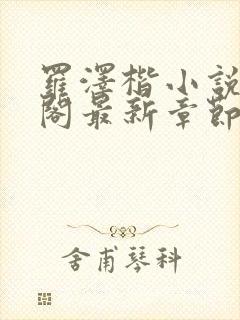 羅澤楷小說
閣最新章節
舍甫琴科